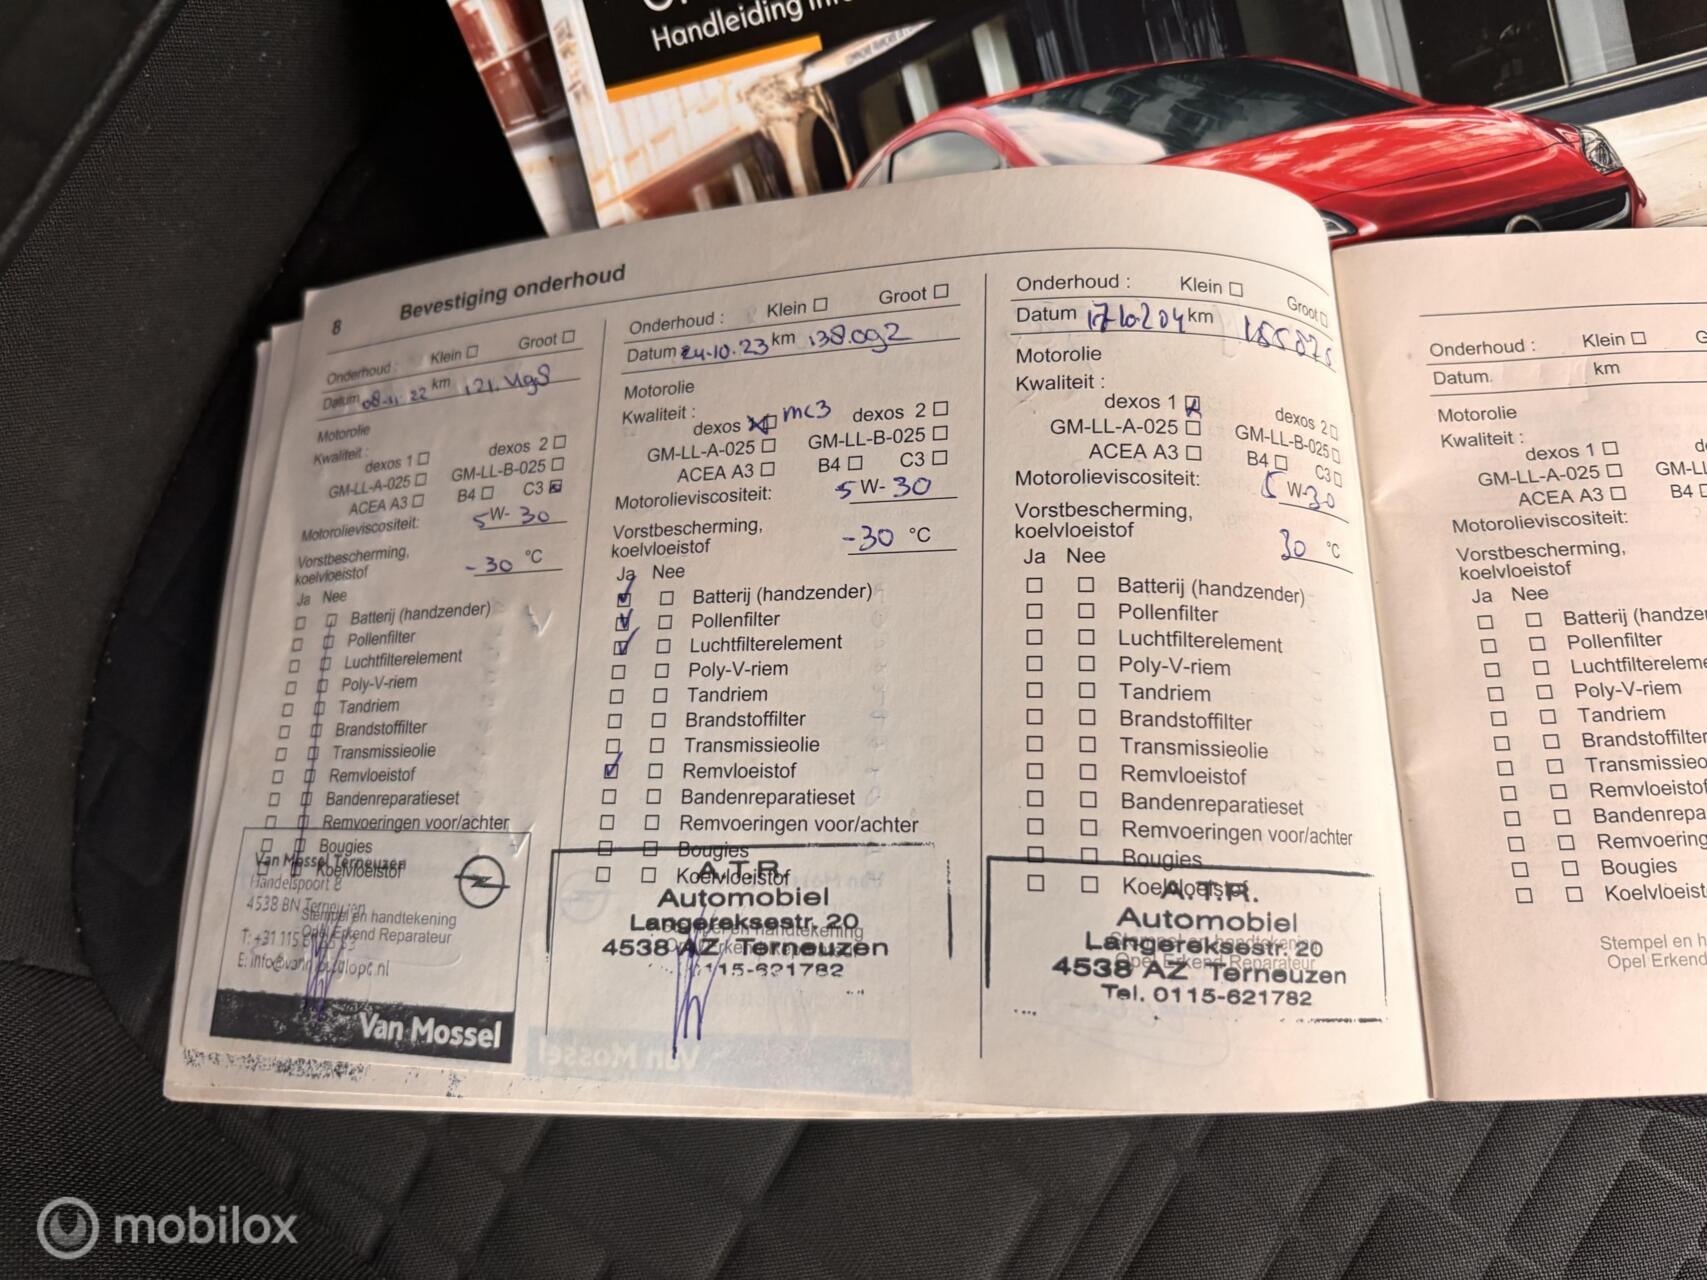 Handleiding
8 Bevestiging onderhoud
Onderhoud : Klein Groot
Datum 08-11-22 km
Motorolie
Kwaliteit :
dexos 1 dexos 2
GM-LL-A-025 GM-LL-B-025
ACEA A3 B4 C3
Motorolieviscositeit: 5 W- 30
Vorstbescherming,
koelvloeistof -30 °C
Ja Nee
Batterij (handzender)
Pollenfilter
Luchtfilterelement
Poly-V-riem
Tandriem
Brandstoffilter
Transmissieolie
Remvloeistof
Bandenreparatieset
Remvoeringen voor/achter
Bougies
Koelvloeistof
Van Mossel Terneuzen
Handelspoort 8
4538 BN Terneuzen
Stempel en handtekening
Opel Erkend Reparateur
Van Mossel
Onderhoud : Klein Groot
Datum 24-10-23 km 138.092
Motorolie
Kwaliteit :
dexos mc3 dexos 2
GM-LL-A-025 GM-LL-B-025
ACEA A3 B4 C3
Motorolieviscositeit: 5 W- 30
Vorstbescherming,
koelvloeistof -30 °C
Ja Nee
Batterij (handzender)
Pollenfilter
Luchtfilterelement
Poly-V-riem
Tandriem
Brandstoffilter
Transmissieolie
Remvloeistof
Bandenreparatieset
Remvoeringen voor/achter
Bougies
Koelvloeistof
A.T.R.
Automobiel
Langereksestr. 20
4538 AZ Terneuzen
0115-621782
Onderhoud : Klein Groot
Datum km
Motorolie
Kwaliteit :
dexos 1 dexos 2
GM-LL-A-025 GM-LL-B-025
ACEA A3 B4 C3
Motorolieviscositeit: 5 W-30
Vorstbescherming,
koelvloeistof 30 °C
Ja Nee
Batterij (handzender)
Pollenfilter
Luchtfilterelement
Poly-V-riem
Tandriem
Brandstoffilter
Transmissieolie
Remvloeistof
Bandenreparatieset
Remvoeringen voor/achter
Bougies
Koelvloeistof
A.T.R.
Automobiel
Langereksestr. 20
4538 AZ Terneuzen
Tel. 0115-621782
Onderhoud : Klein
Datum. km
Motorolie
Kwaliteit :
dexos 1
GM-LL-A-025
ACEA A3 B4
Motorolieviscositeit:
Vorstbescherming,
koelvloeistof
Ja Nee
Batterij
Pollenfilter
Poly-V-riem
Tandriem
Bougies
Stempel en
Opel Erkend
mobilox